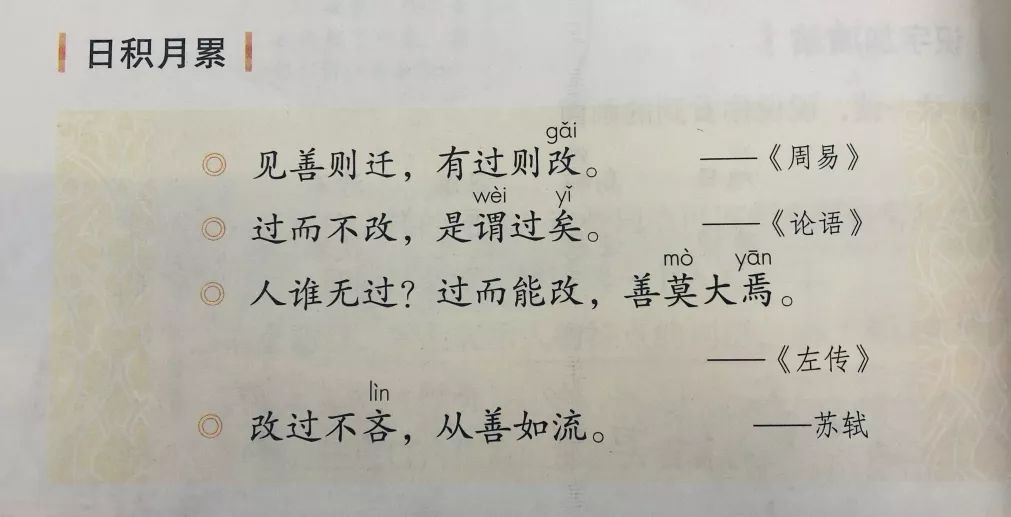 日积月累
gǎi
◎ 见善则迁，有过则改。 ——《周易》
wèi yǐ
◎ 过而不改，是谓过矣。 ——《论语》
mò yān
◎ 人谁无过？过而能改，善莫大焉。
——《左传》
lìn
◎ 改过不吝，从善如流。 ——苏轼